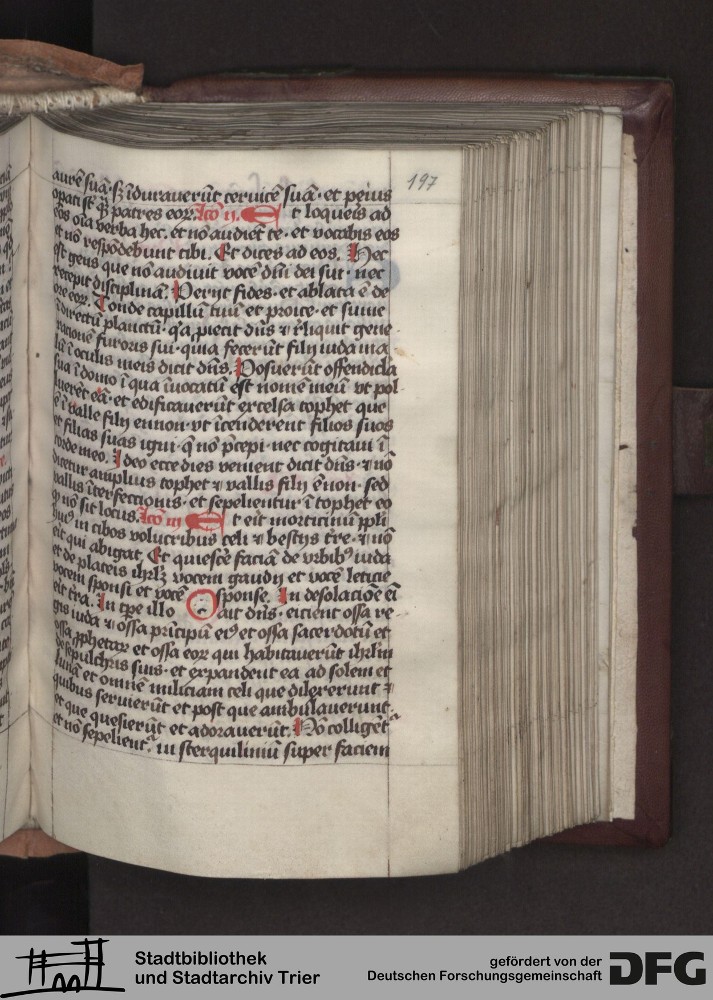 197
aurē suā· sꝫ īdurauerūt ceruicē suā· et peius
opati sūt q̄ꝫ patres eoꝝ. Lc̄o ij. Et loqueris ad
eos oīa verba hec· et nō audiēt te· et vocabis eos
et nō respōdebunt tibi. Et dices ad eos. Hec
est gens que nō audiuit vocē dn̄i dei sui· nec
recepit disciplinā. Perijt fides· et ablata ē de
ore eoꝝ. Tonde capillū tuū et proice· et sume
ī directū planctū· q̄a ꝓiecit dn̄s ⁊ r̄liquit gene
rationē furoris sui· quia fecerūt filij iuda ma
lū ī oculis meis dicit dn̄s. Posuerūt offendicla
sua ī domo ī qua īuocatū est nomē meū vt pol
luerēt eā· et edificauerūt excelsa tophet que
ē ī valle filij ennon· vt īcenderent filios suos
et filias suas igni· q̄ nō p̄cepi· nec cogitaui ī
corde meo. Ideo ecce dies venient dicit dn̄s· ⁊ nō
dicetur amplius tophet ⁊ vallis filij ēnon· sed
vallis īterfectionis· et sepelientur ī tophet eo
ꝙ nō sit locus. Lc̄o iij Et erit morticinū ppli
huiꝰ in cibos volucribus celi ⁊ bestijs t̄re· ⁊ nō
erit qui abigat. Et quiescē faciā de vrbibꝰ iuda
et de plateis ihrlꝫ vocem gaudij et vocē leticie
vocem sponsi et vocē sponse. In desolacioē em̄
erit t̄ra. In tp̄e illo ait dn̄s· eicient ossa re
gis iuda ⁊ ossa prīcipū eiꝰ et ossa sacerdotū et
ossa ꝓphetaꝝ et ossa eoꝝ qui habitauerūt ihrlm
de sepulchris suis· et expandent ea ad solem et
lunā et omnē miliciam celi que dilexerunt ⁊
quibus seruierūt et post que ambulauerunt·
et que quesierūt et adorauerūt. Nō colligēt᷑
et nō sepelient᷑· in sterquiliniū super faciem
Stadtbibliothek
und Stadtarchiv Trier
gefördert von der
Deutschen Forschungsgemeinschaft
DFG